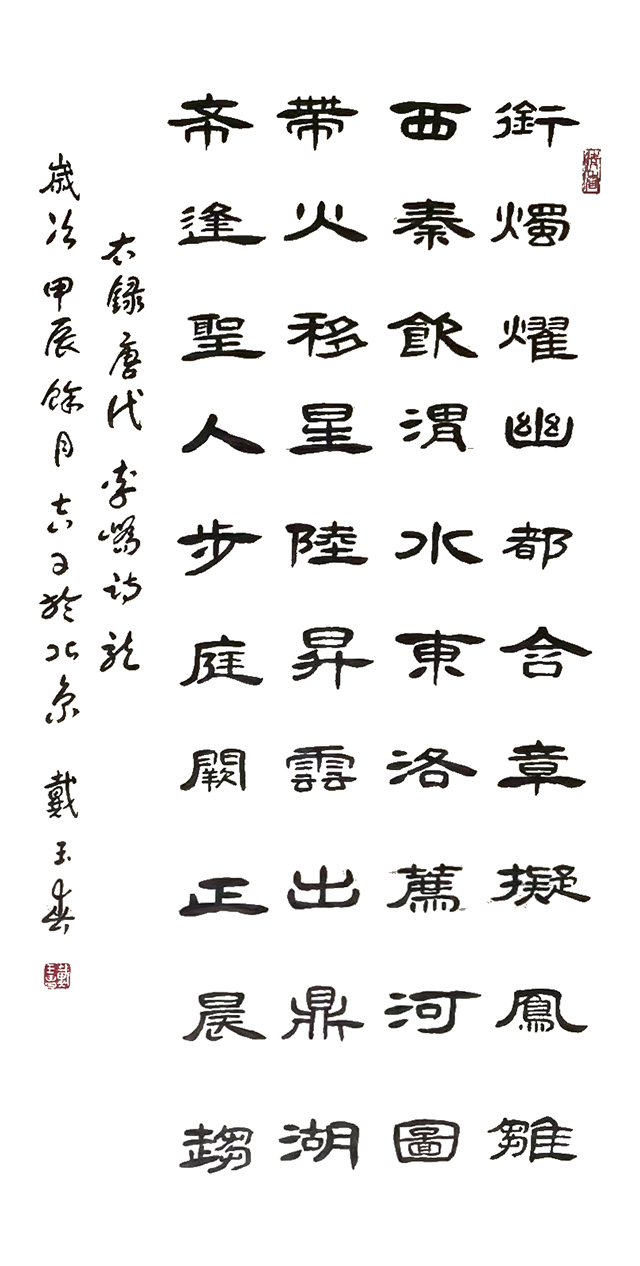 銜燭燿幽都含章擬鳳雛
西秦飲渭水東洛薦河圖
帶火移星陸昇雲出鼎湖
希逢聖人步庭闕正晨趨
右録唐代李嶠詩龍
歲次甲辰餘月吉日於北京 戴玉